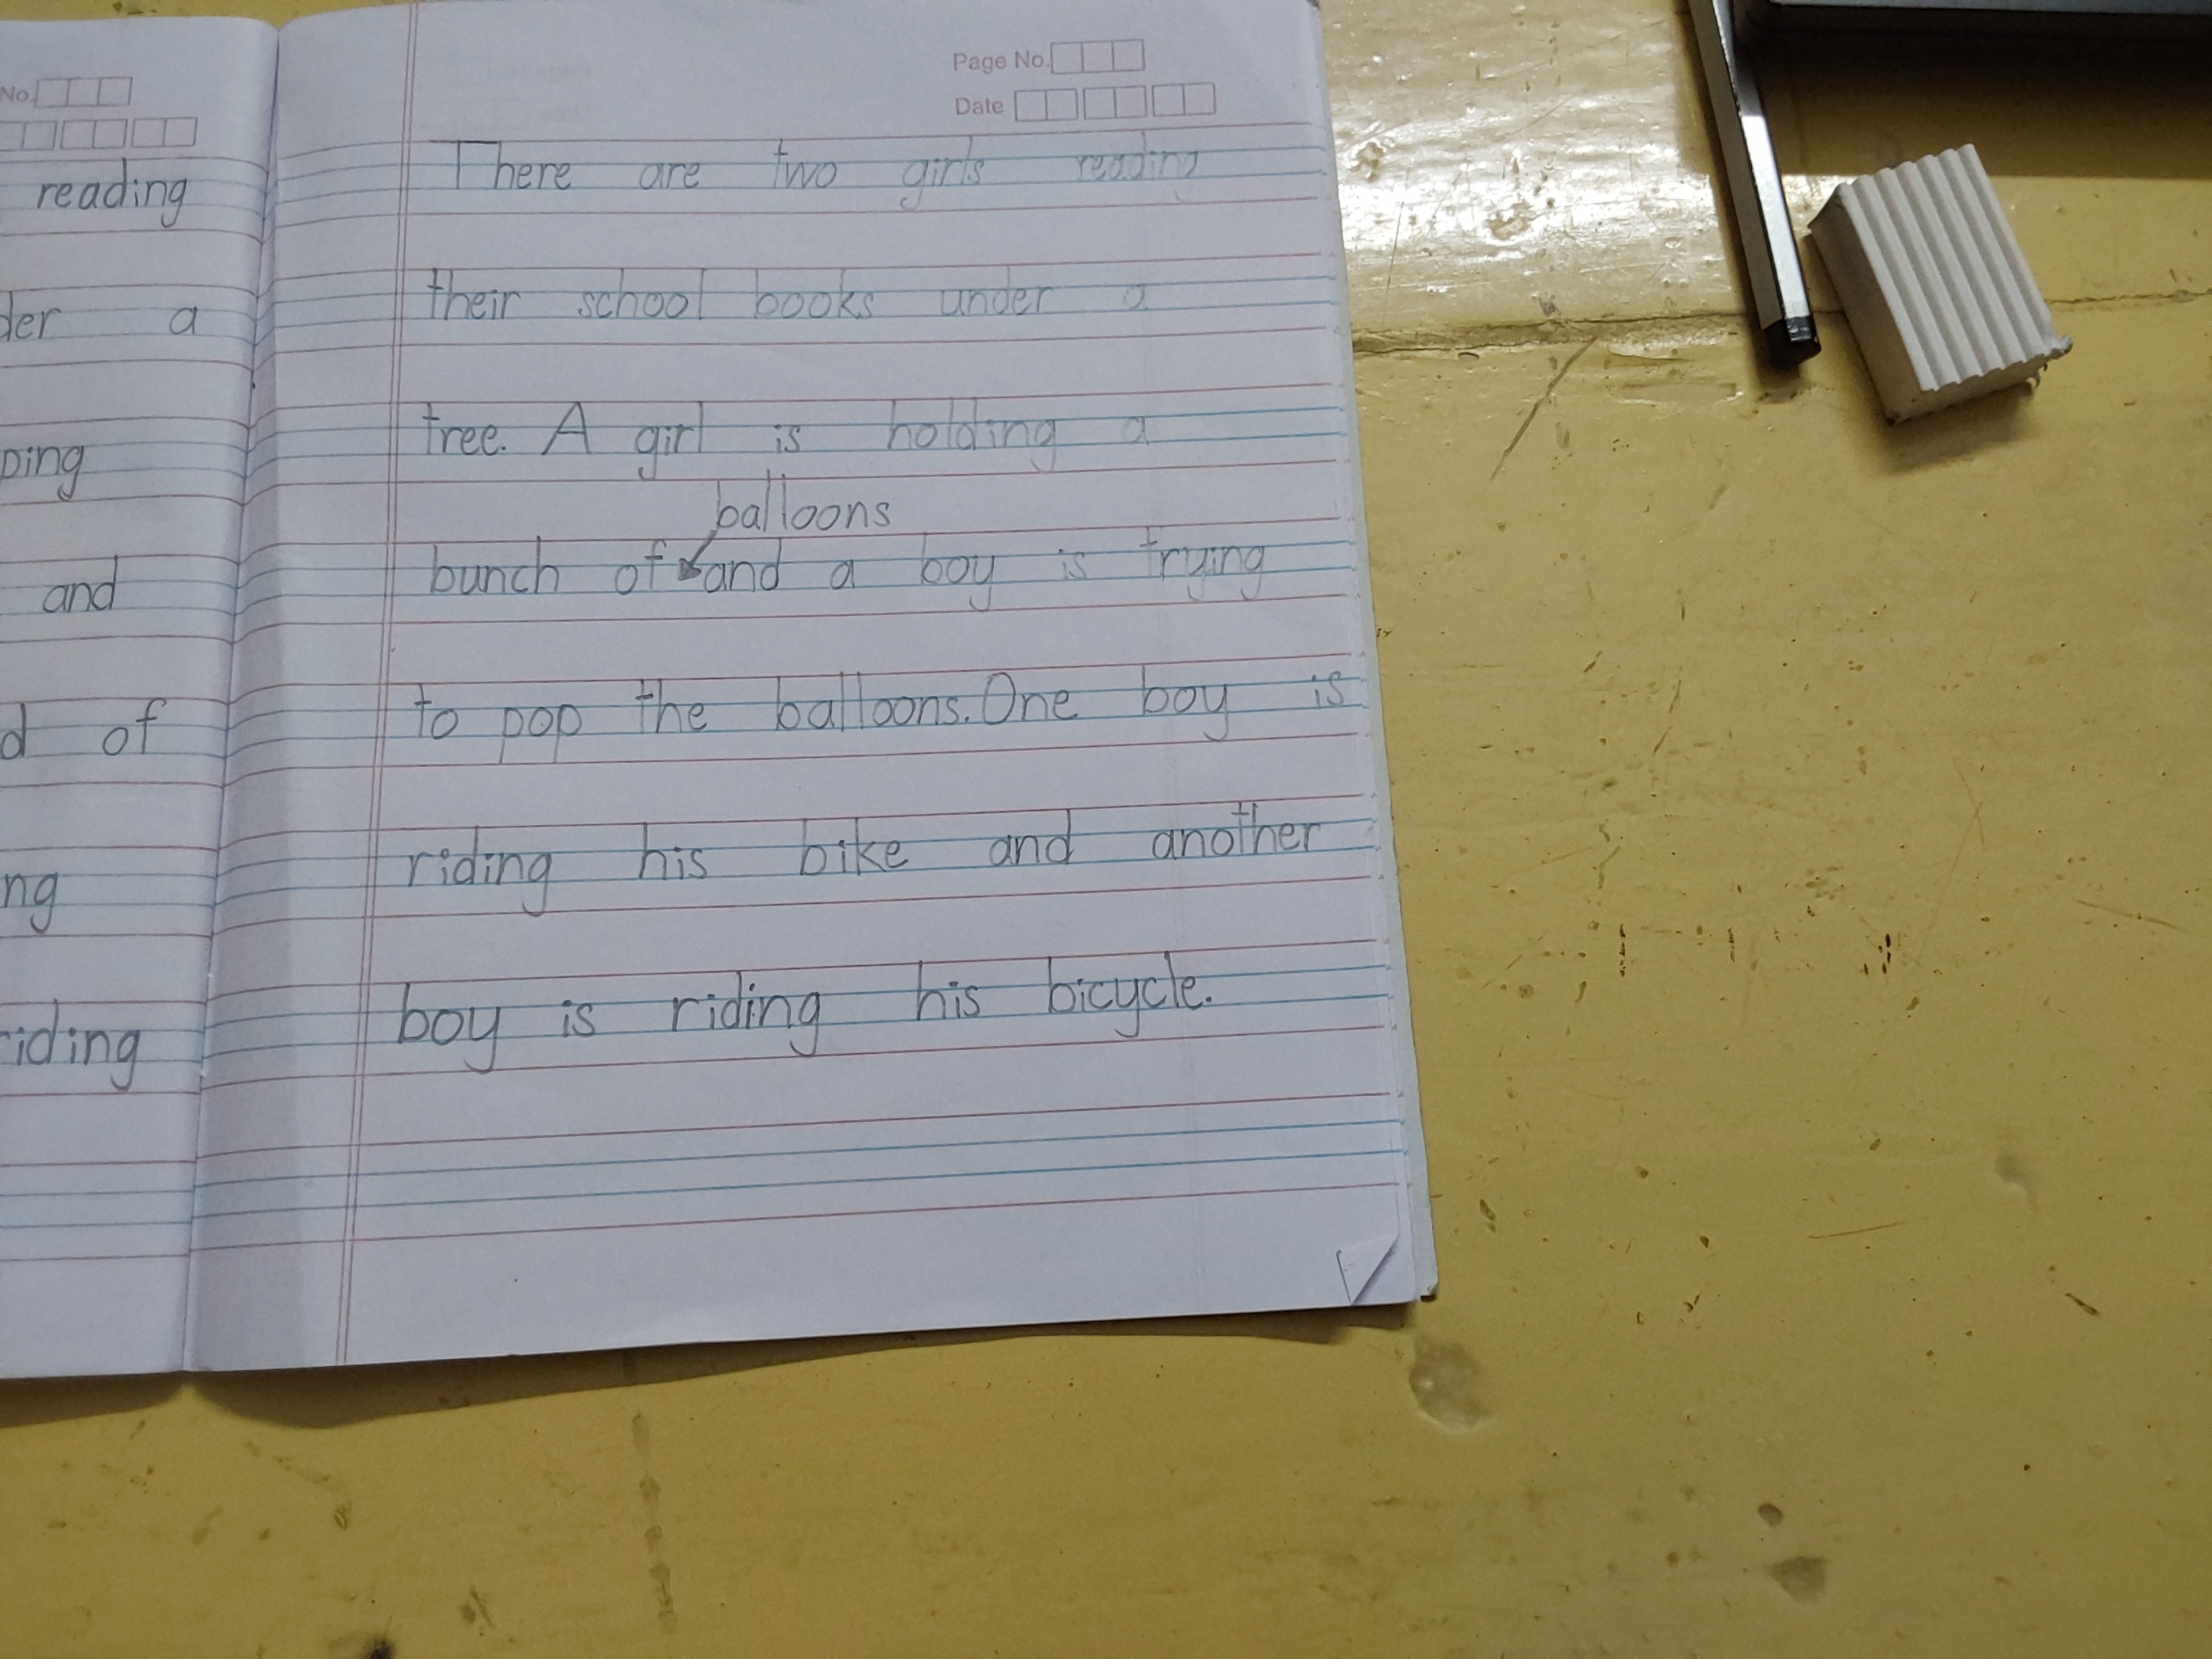 No.
reading
der a
ping
and
d of
ng
riding
Page No.
Date
There are two girls reading
their school books under a
tree. A girl is holding a
balloons
bunch of and a boy is trying
to pop the balloons. One boy is
riding his bike and another
boy is riding his bicycle.